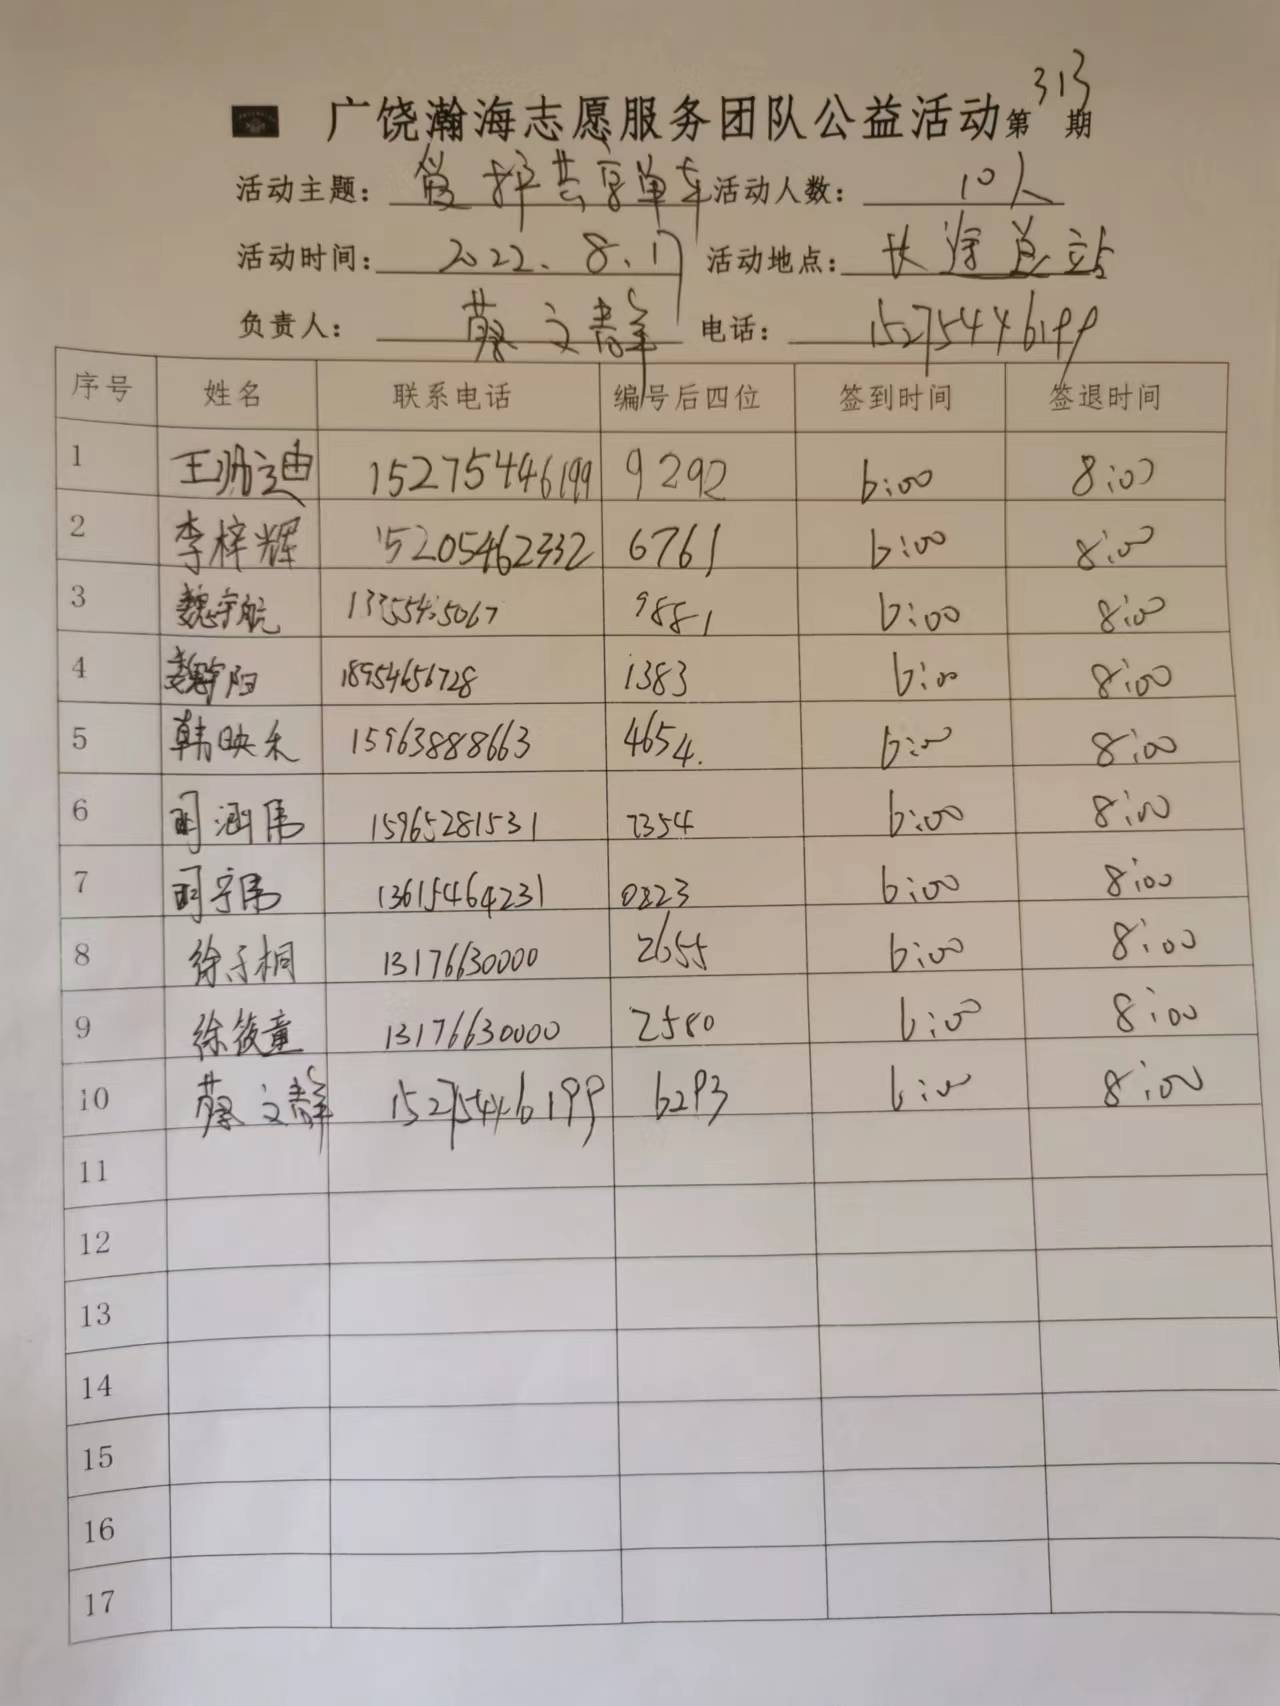 广饶瀚海志愿服务团队公益活动第313期
活动主题：爱护共享单车 活动人数：10人
活动时间：2022.8.17 活动地点：长途总站
负责人：蔡文静 电话：15275446199
序号 姓名 联系电话 编号后四位 签到时间 签退时间
1 15275446199 9292 6:00 8:00
2 李梓辉 15205462332 6761 6:00 8:00
3 魏宇航 9881 6:00 8:00
4 魏宇阳 18954656728 1383 6:00 8:00
5 韩映禾 15963888663 4654. 6:00 8:00
6 明涵伟 15965281531 7354 6:00 8:00
7 明宇伟 13615464231 0823 6:00 8:00
8 徐子桐 13176630000 2655 6:00 8:00
9 徐筱童 13176630000 2580 6:00 8:00
10 蔡文静 15275446199 6293 6:00 8:00
11
12
13
14
15
16
17